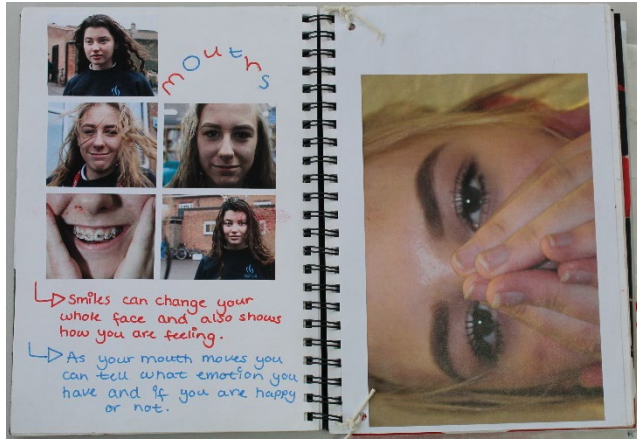 mouths
Smiles can change your
whole face and also shows
how you are feeling.
As your mouth moves you
can tell what emotion you
have and if you are happy
or not.